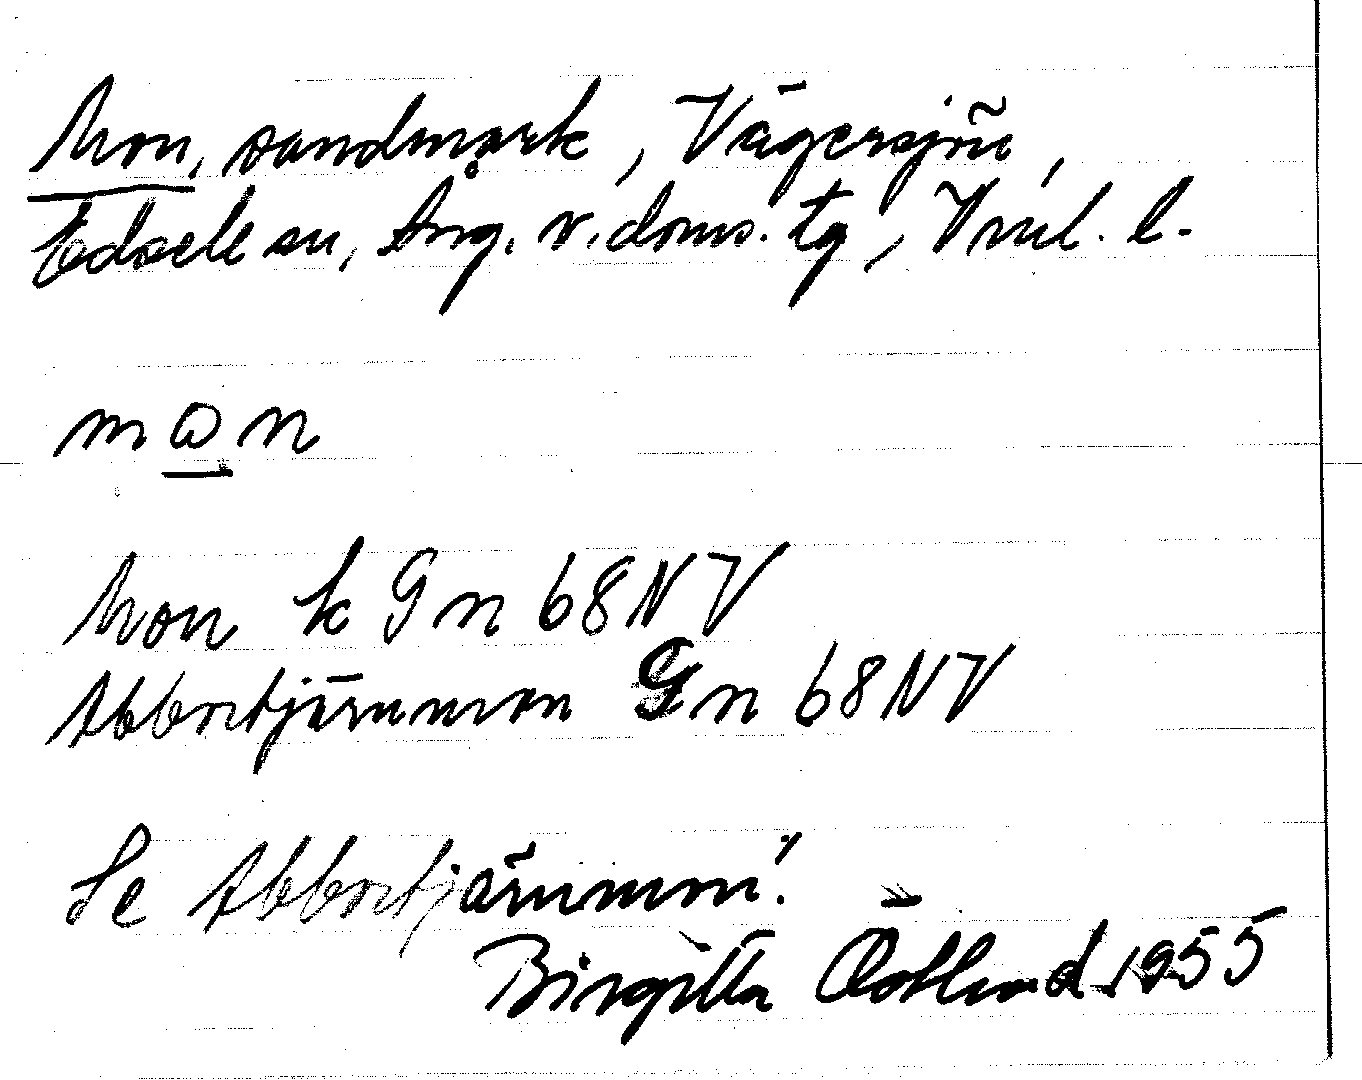 Mon, sandmark, Vägersjön,
Edsele sn, Ång. v. doms. tg, Vnl. l.
mωn
Mon k Gn 68NV
Abborrtjärnmon Gn 68NV
Se Abborrtjärnmon!
Birgitta Östlund 1955